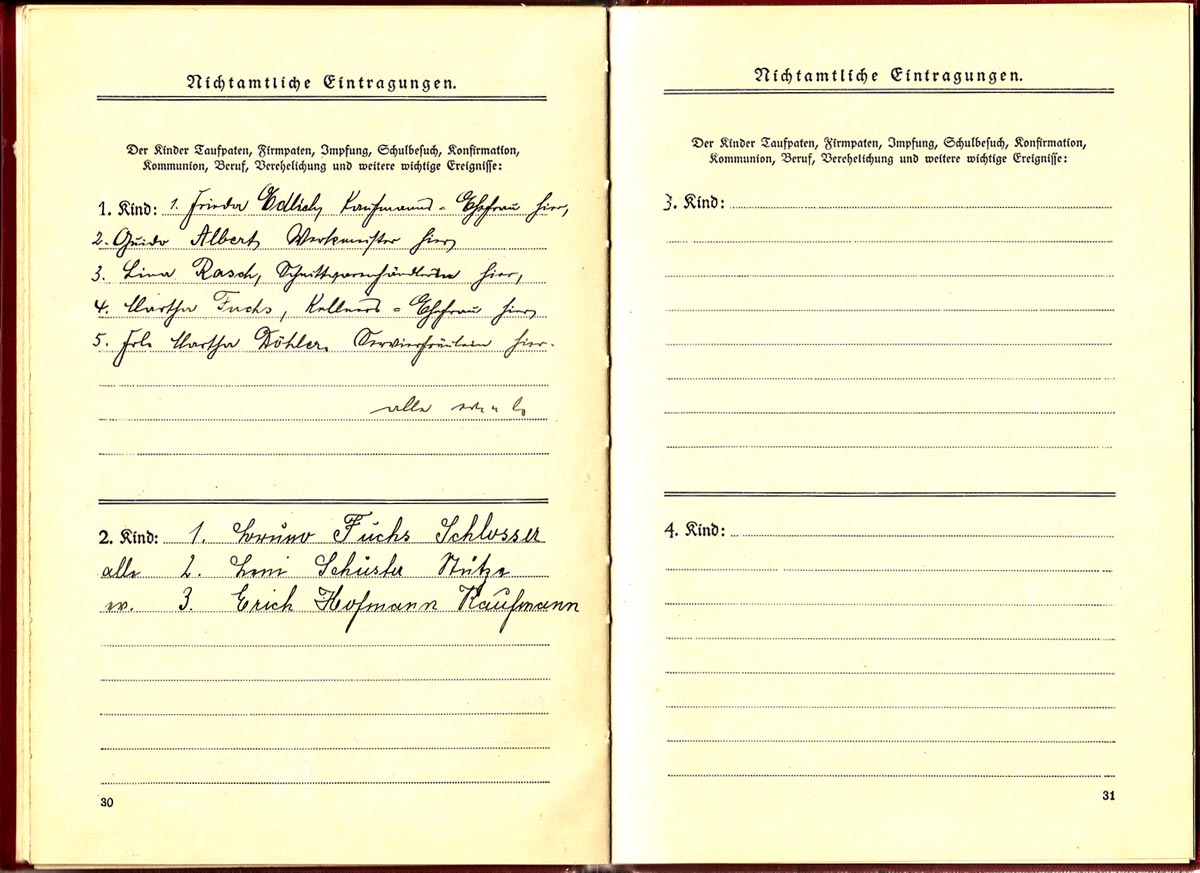 Nichtamtliche Eintragungen.
Der Kinder Taufpaten, Firmpaten, Impfung, Schulbesuch, Konfirmation,
Kommunion, Beruf, Verehelichung und weitere wichtige Ereignisse:
1. Kind: 1. Frieda Edlich, Kaufmanns-Ehefrau hier,
2. Guido Albert, Werkmeister hier,
3. Lina Rasch, Schnittwarenhändlerin hier,
4. Martha Fuchs, Kellners-Ehefrau hier,
5. Frl. Martha Döhler, Servierfräulein hier.
alle
2. Kind: 1. Bruno Fuchs Schlosser
alle 2. Leni Schuster Stütze
ev. 3. Erich Hofmann Kaufmann
30
Nichtamtliche Eintragungen.
Der Kinder Taufpaten, Firmpaten, Impfung, Schulbesuch, Konfirmation,
Kommunion, Beruf, Verehelichung und weitere wichtige Ereignisse:
3. Kind:
4. Kind:
31